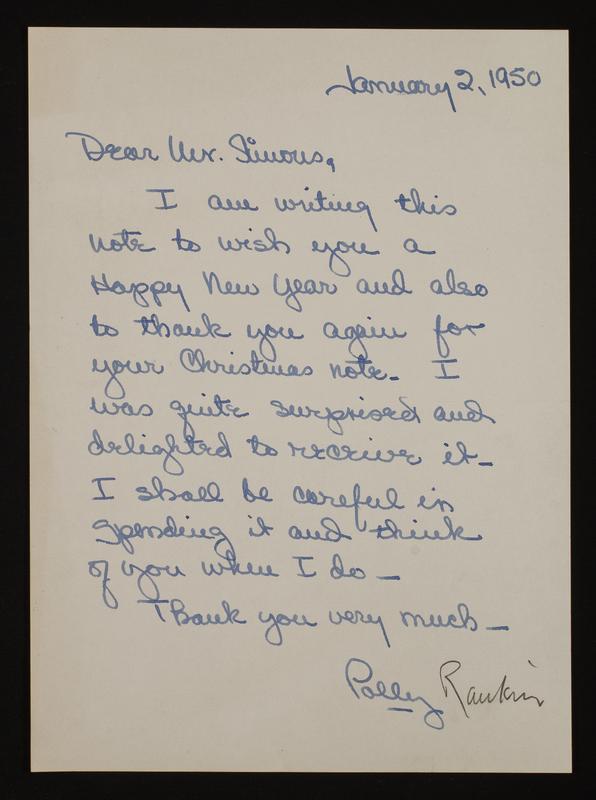 January 2, 1950
Dear Mr. Simons,
I am writing this
note to wish you a
Happy New Year and also
to thank you again for
your Christmas note- I
was quite surprised and
delighted to receive it-
I shall be careful in
spending it and think
of you when I do -
Thank you very much -
Polly Rankin